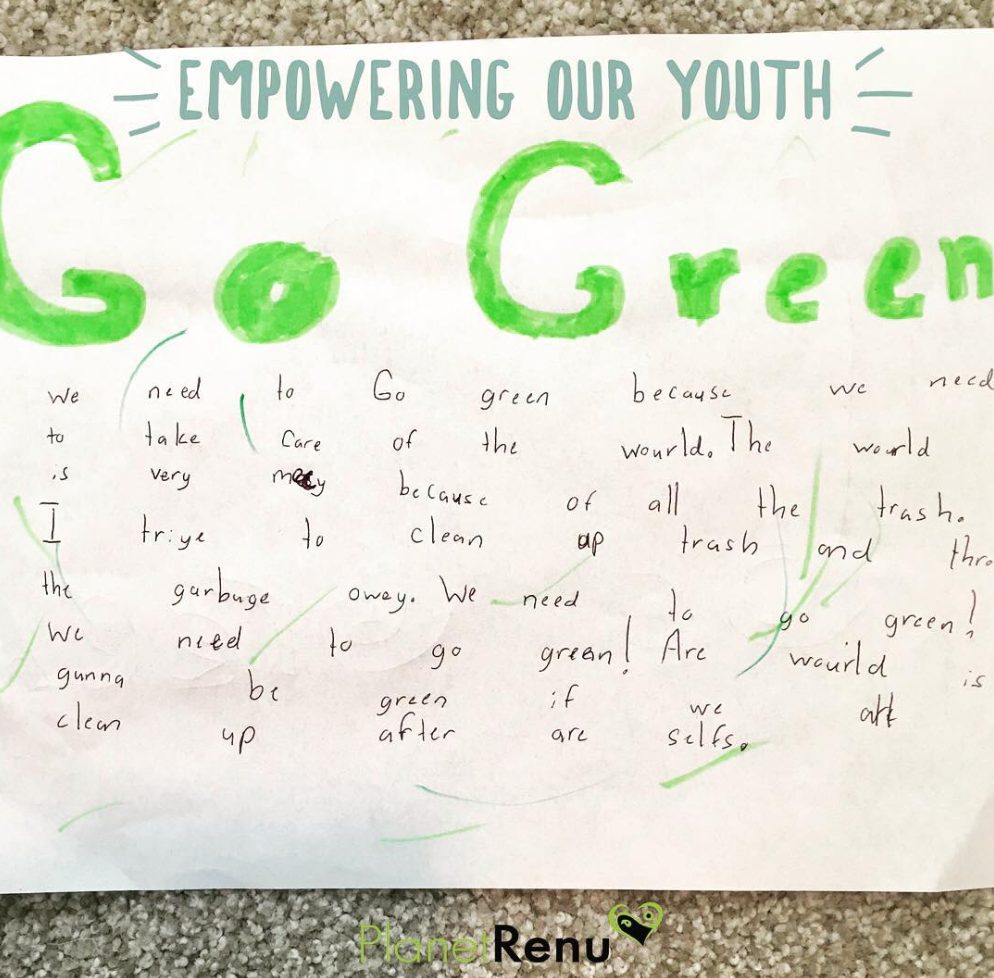 EMPOWERING OUR YOUTH
Go Green
we need to Go green because we need
to take Care of the wourld. The wourld
is very because of all the trash.
I triye to clean up trash and thro
the garbuge owey. We need to go green!
We need to go green! Are waurld is
gunna be green if we
clean up after are selfs.
PlanetRenu